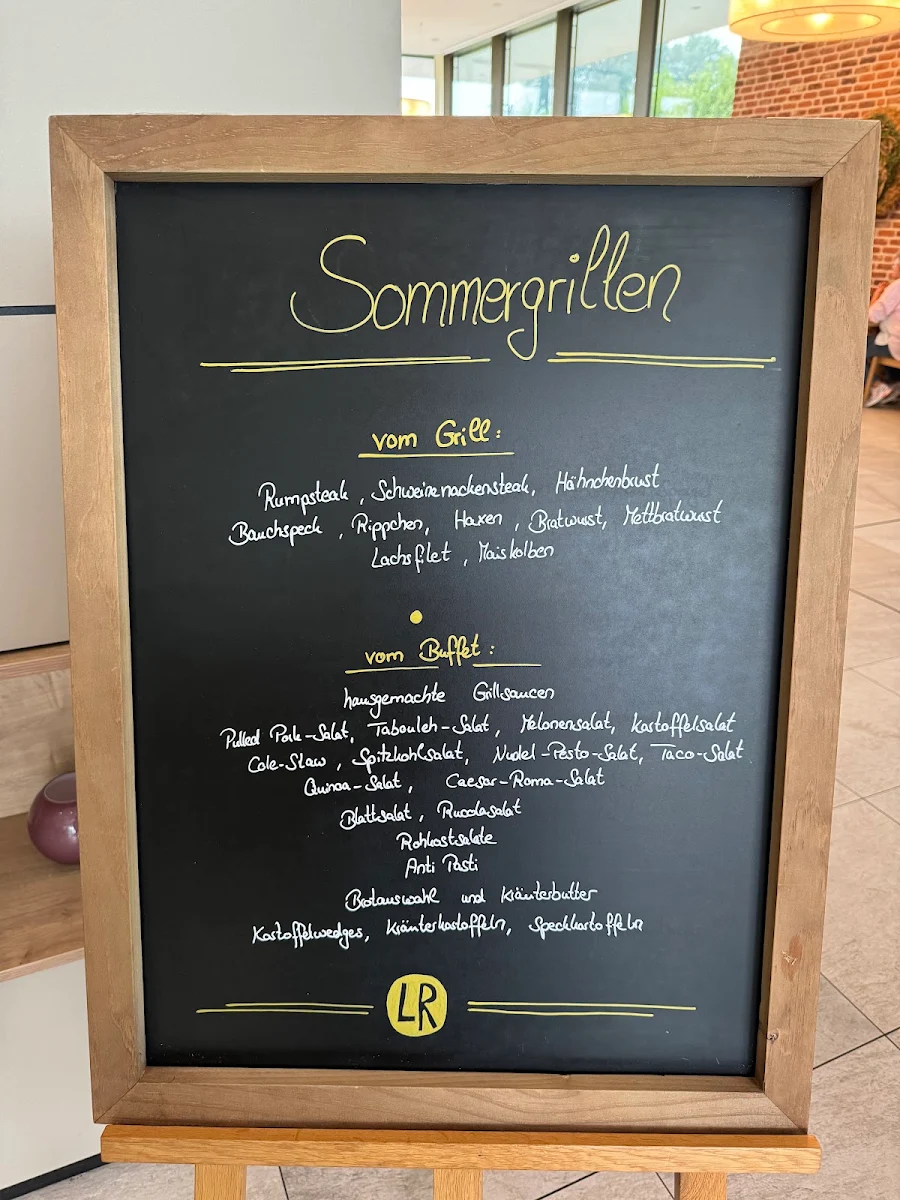 Sommergrillen
vom Grill:
Rumpsteak, Schweinenackensteak, Hähnchenbrust
Bauchspeck, Rippchen, Haxen, Bratwurst, Mettbratwurst
Lachsfilet, Maiskolben
vom Buffet:
hausgemachte Grillsaucen
Pulled Pork-Salat, Tabouleh-Salat, Melonensalat, Kartoffelsalat
Cole-Slaw, Spitzkohlsalat, Nudel-Pesto-Salat, Taco-Salat
Quinoa-Salat, Caesar-Roma-Salat
Blattsalat, Rucolasalat
Rohkostsalate
Anti Pasti
Brotauswahl und Kräuterbutter
Kartoffelwedges, Kräuterkartoffeln, Speckkartoffeln
LR